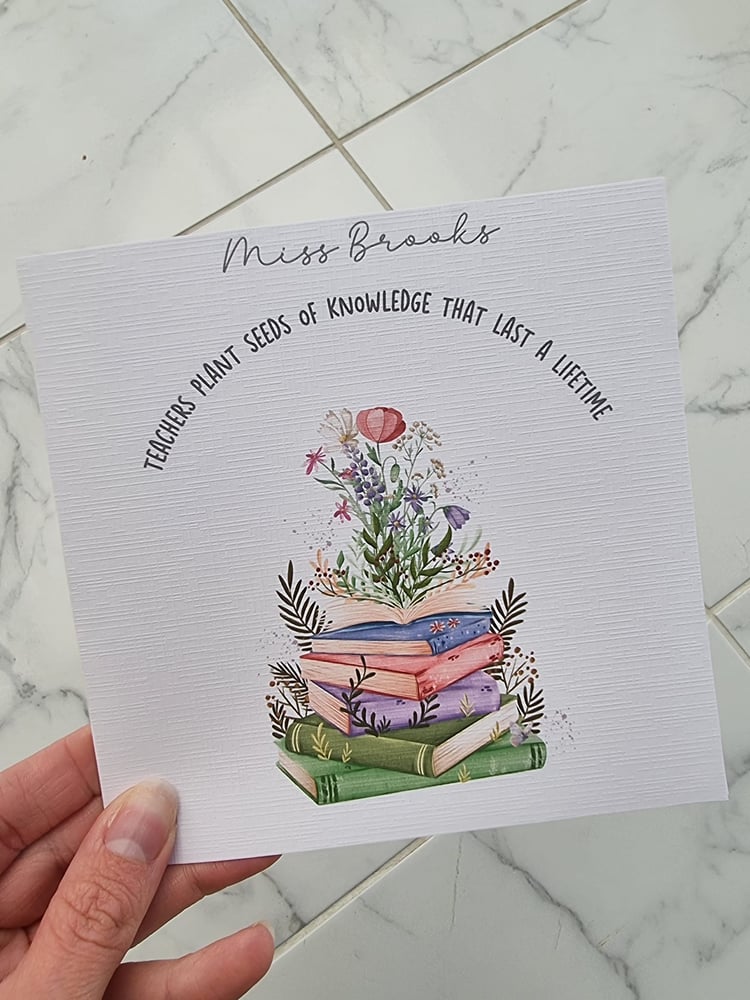 Miss Brooks
TEACHERS PLANT SEEDS OF KNOWLEDGE THAT LAST A LIFETIME